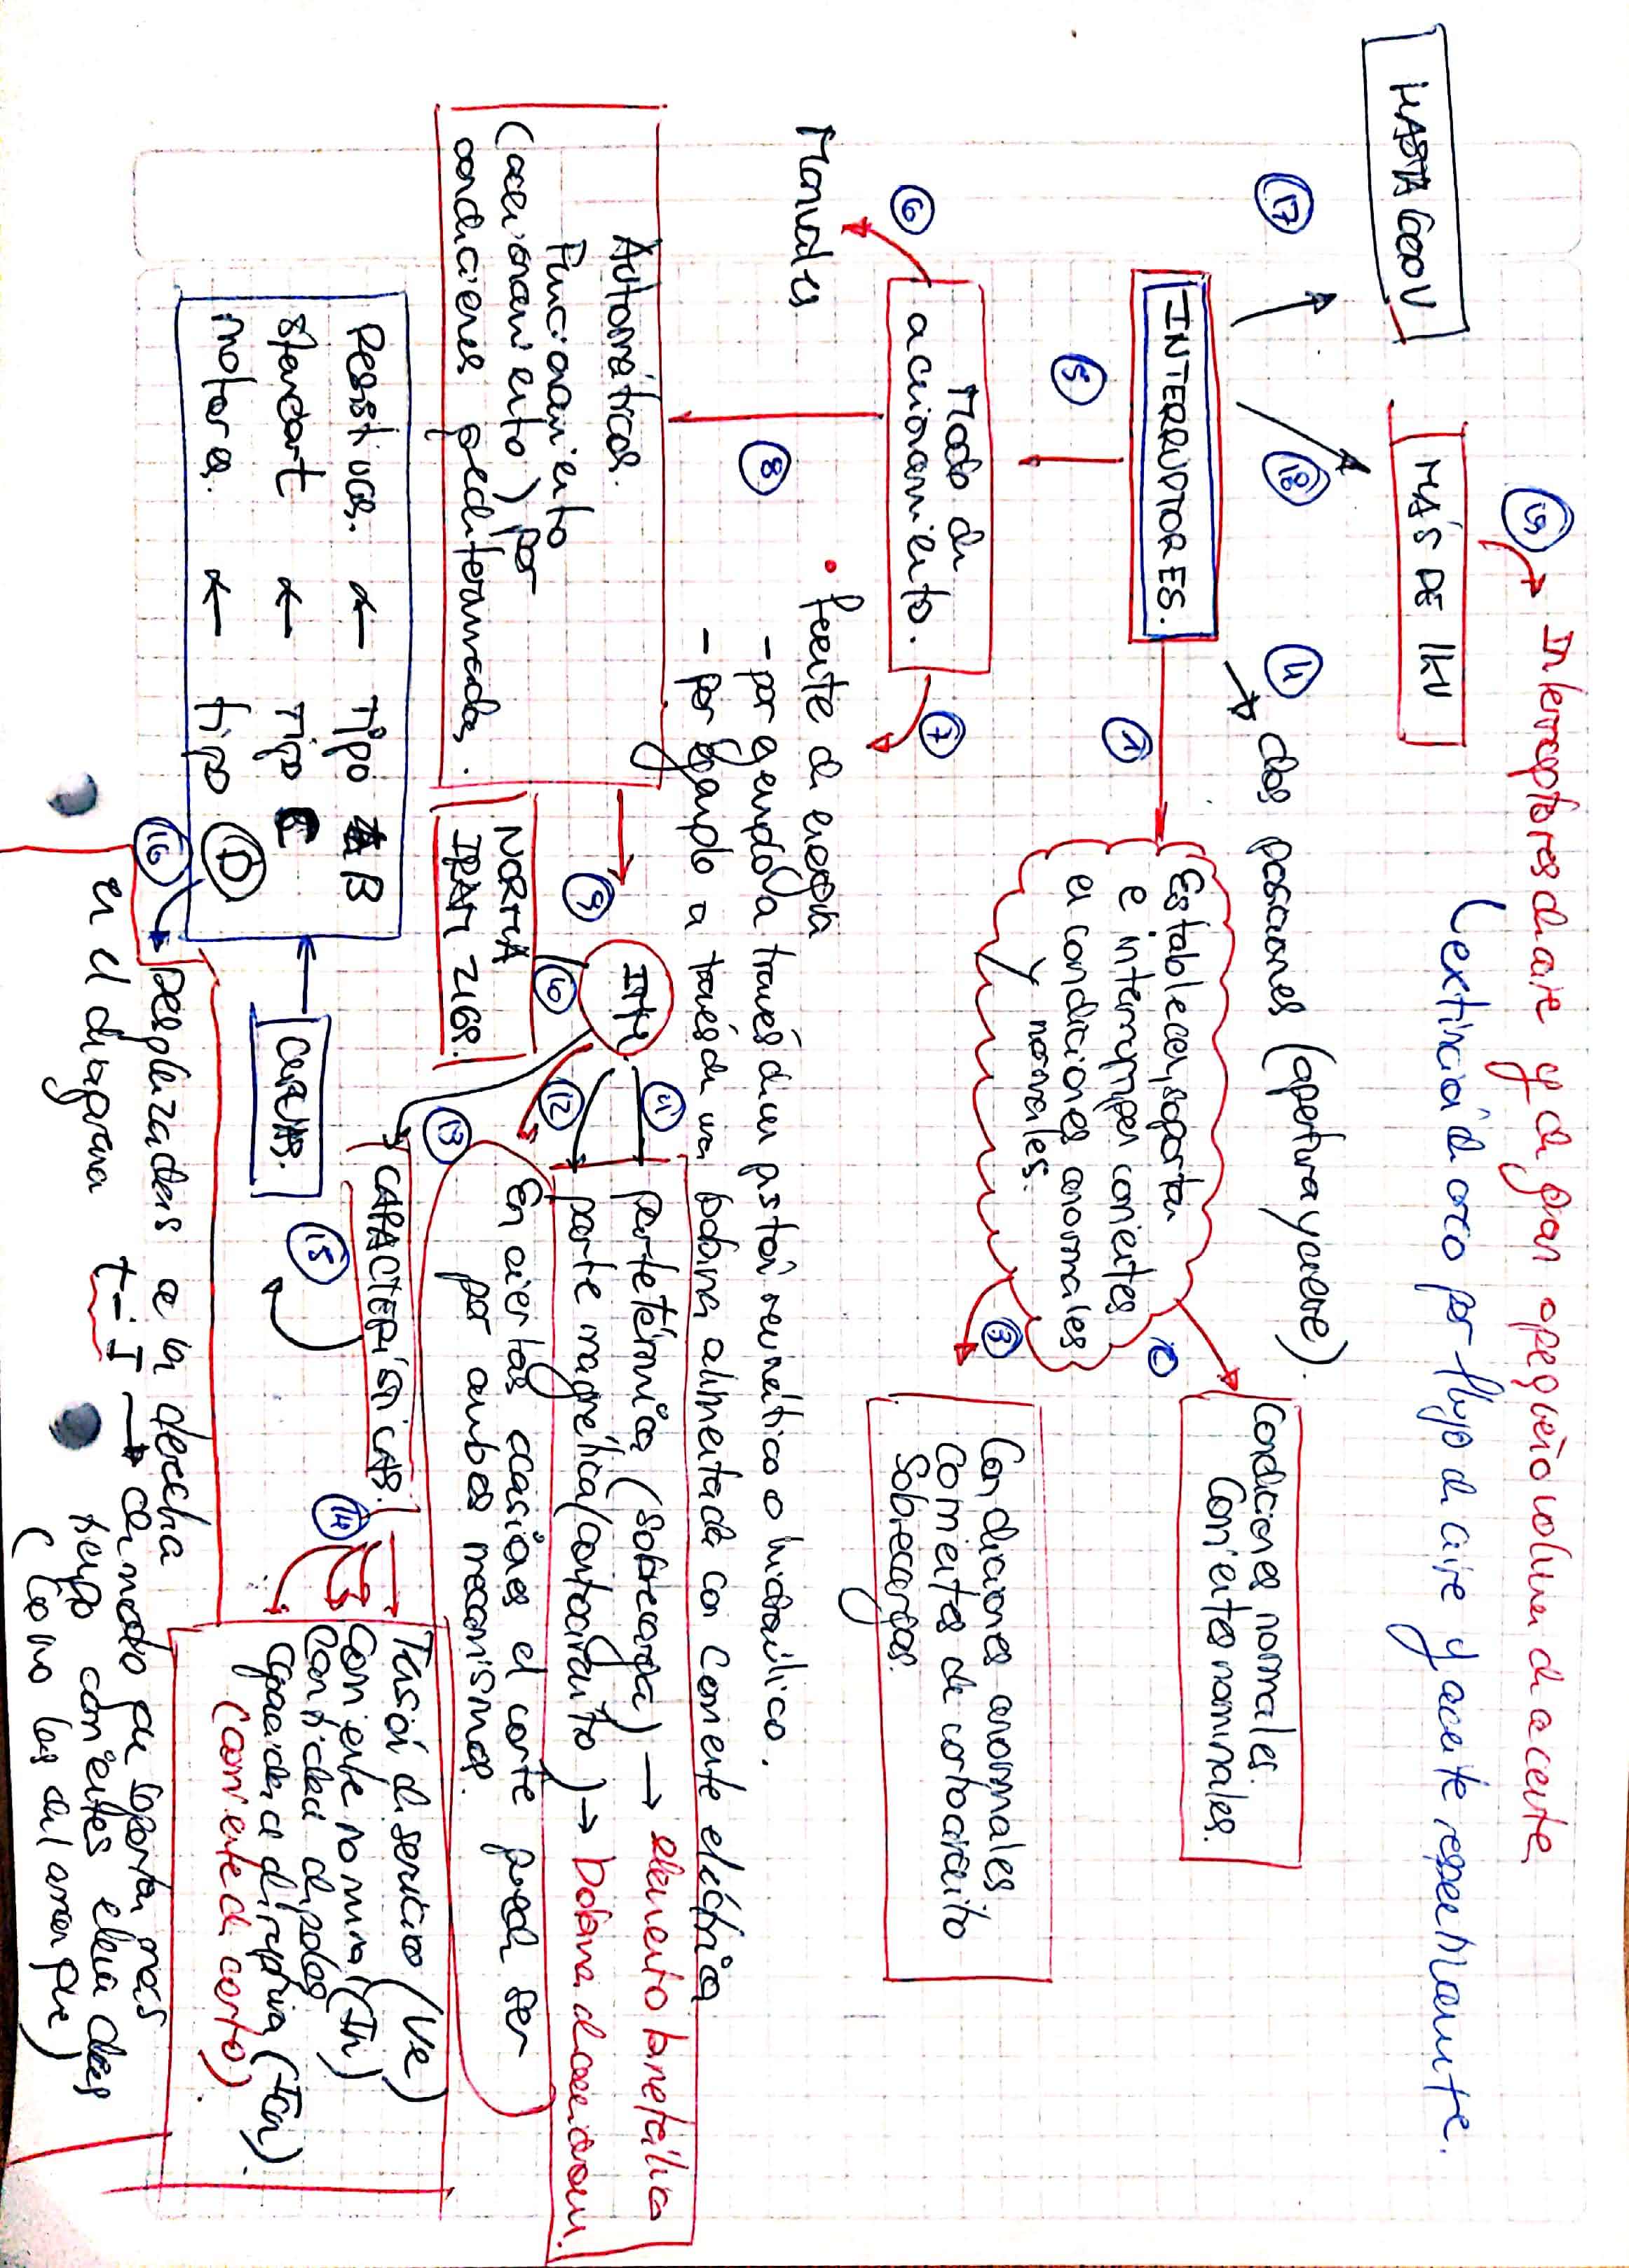 19 Interruptores de aire y de gran o pequeño volumen de aceite
(extinción de arco por flujo de aire y aceite respectivamente.
HASTA 1000V
MÁS DE 1kV
17
18
4 dos posiciones (apertura y cierre).
INTERRUPTORES.
1
Establecer, soportar
e interrumpir corrientes
en condiciones anormales
y normales.
2
Condiciones normales.
Corrientes nominales.
3
Condiciones anormales
Corrientes de cortocircuito
Sobrecargas.
5
Modo de
accionamiento.
6
Manuales
7
• fuente de energía
- por energía a través de un pistón neumático o hidráulico.
- por energía a través de una bobina alimentada con corriente eléctrica
8
Automáticos.
Funcionamiento
(accionamiento) por
condiciones predeterminadas.
9
ITM
10
NORMA
IRAM 2169.
11
parte térmica (sobrecarga) → elemento bimetálico
12
parte magnética (cortocircuito) → bobina de accionam.
En ciertas ocasiones el corte puede ser
por ambos mecanismos.
13
CARACTERÍSTICAS.
14
Tensión de servicio (Ve)
Corriente nominal (In)
Cantidad de polos
Capacidad de ruptura (Icn).
(corriente de corto).
15
CURVAS.
Resistivas. ← Tipo B
standart ← Tipo C
motores. ← tipo D
16
Desplazadas a la derecha
en el diagrama t-I → con motivo de soportar más
tiempo corrientes elevadas
(como las del arranque)